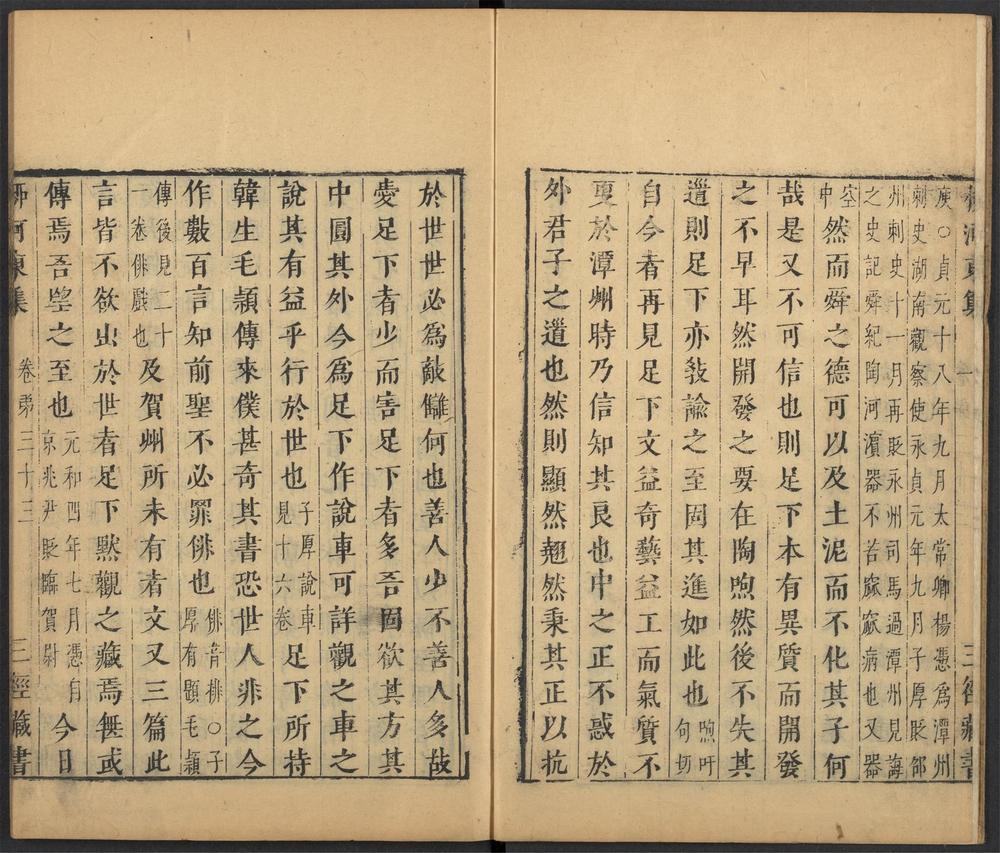 柳河東集 一 三徑藏書
庚〇貞元十八年九月太常卿楊憑為潭州
刺史湖南觀察使永貞元年九月子厚貶邵
州刺史十一月再貶永州司馬過潭州見誨
之史記舜紀陶河濵器不若窳窳病也又器
空
中
然而舜之德可以及土泥而不化其子何
哉是又不可信也則足下本有異質而開發
之不早耳然開發之要在陶煦然後不失其
道則足下亦教諭之至固其進如此也
煦吁
句切
自今者再見足下文益奇藝益工而氣質不
更於潭州時乃信知其良也中之正不惑於
外君子之道也然則顯然翹然秉其正以抗
於世世必為敵讎何也善人少不善人多故
愛足下者少而害足下者多吾固欲其方其
中圓其外今為足下作說車可詳觀之車之
說其有益乎行於世也
子厚說車
見十六卷
足下所持
韓生毛頴傳來僕甚奇其書恐世人非之今
作數百言知前聖不必罪俳也
俳音排〇子
厚有題毛頴
傳後見二十
一卷俳戲也
及賀州所未有者文又三篇此
言皆不欲出於世者足下默觀之藏焉無或
傳焉吾望之至也
元和四年七月憑自
京兆尹貶臨賀尉
今日
柳河東集 卷第三十三 三徑藏書